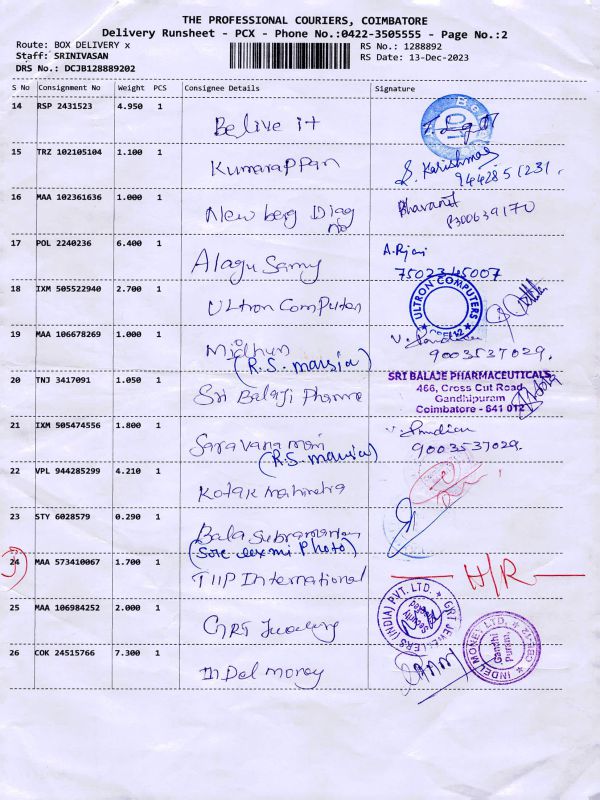 THE PROFESSIONAL COURIERS, COIMBATORE
Delivery Runsheet - PCX - Phone No.:0422-3505555 - Page No.:2
Route: BOX DELIVERY x
RS No.: 1288892
Staff: SRINIVASAN
RS Date: 13-Dec-2023
DRS No.: DCJB128889202
S No Consignment No Weight PCS Consignee Details Signature
14 RSP 2431523 4.950 1
Belive it
15 TRZ 102105104 1.100 1
Kumarappan
S. Karishmaa
9442851231.
16 MAA 102361636 1.000 1
New berg Diag
Bharanit
8300639170
17 POL 2240236 6.400 1
Alagu Samy
A.Rjani
7502345007
18 IXM 505522940 2.700 1
Ultron Computer
ULTRON COMPUTERS
19 MAA 106678269 1.000 1
Midhun
(R.S. mansia)
V. Pandian
9003537029.
20 TNJ 3417091 1.050 1
Sri Balaji Pharma
SRI BALAJE PHARMACEUTICALS
466, Cross Cut Road
Gandhipuram
Coimbatore - 641 012
21 IXM 505474556 1.800 1
Saravana mani
(R.S. mansia)
V. Pandian
9003537029.
22 VPL 944285299 4.210 1
Kotak mahindra
23 STY 6028579 0.290 1
Bala Subramanian
(Sree laxmi Photo)
24 MAA 573410067 1.700 1
TIIP International
H/R
25 MAA 106984252 2.000 1
GRT Jewellery
GRT JEWELLERS (INDIA) PVT. LTD.
26 COK 24515766 7.300 1
InDel money
INDEL MONEY LTD.
Gandhi
Puram.
CBE-12